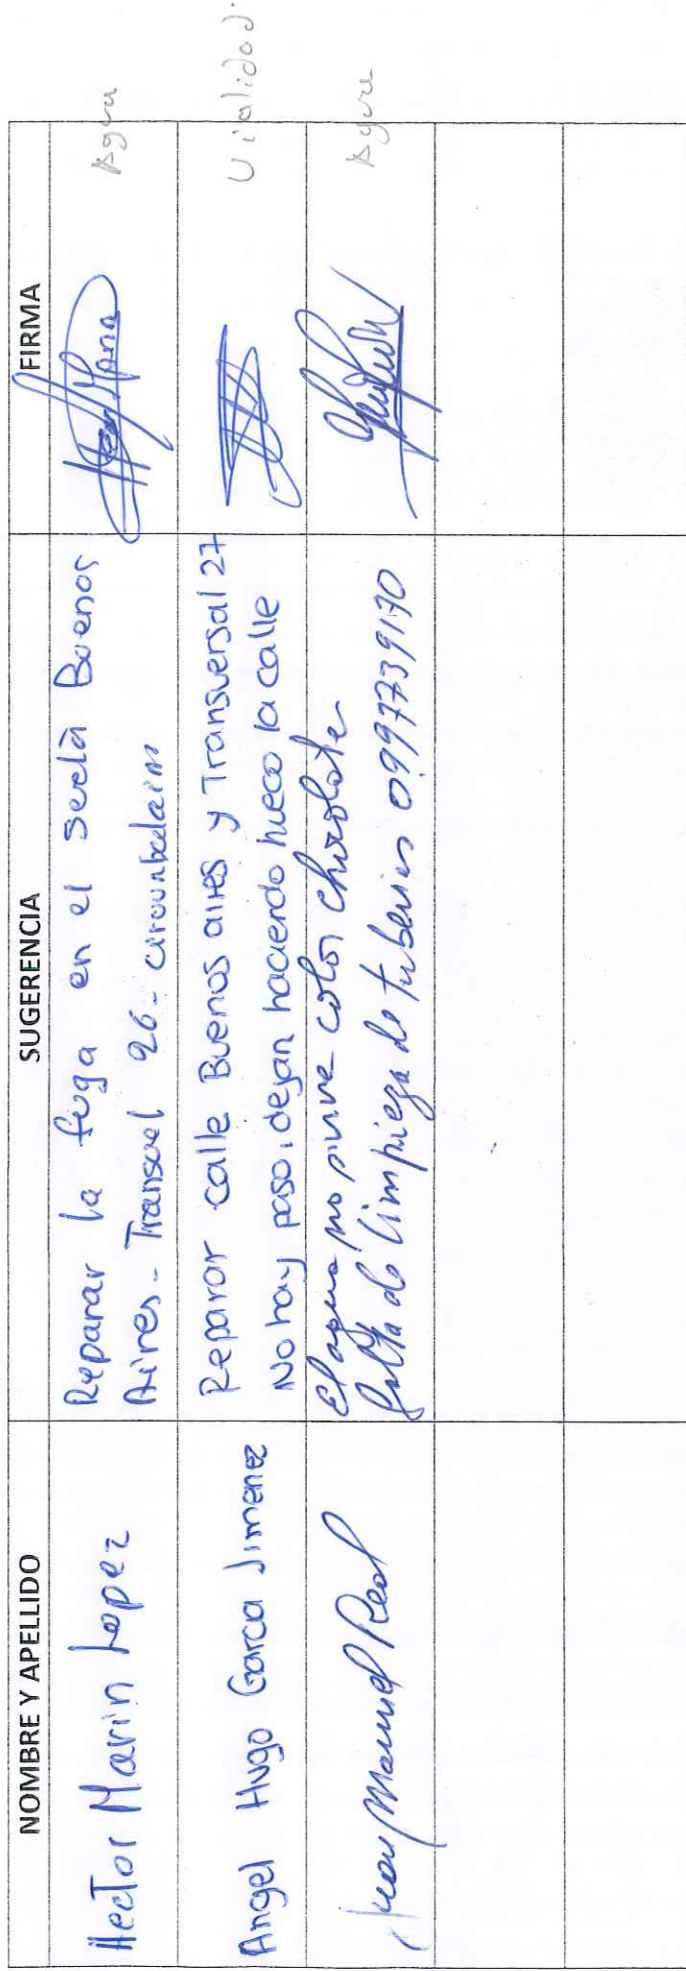 NOMBRE Y APELLIDO SUGERENCIA FIRMA
Hector Marin Lopez
Reparar la fuga en el Buenos
Aires - 26 -
Agua
Angel Hugo Garcia Jimenez
Reparar calle Buenos aires y Transversal 27
No hay paso, dejan haciendo hueco la calle
Vialidad.
Juan Manuel Real
El agua no sirve color chocolate
falta de limpieza de tuberias 0997739170
Agua